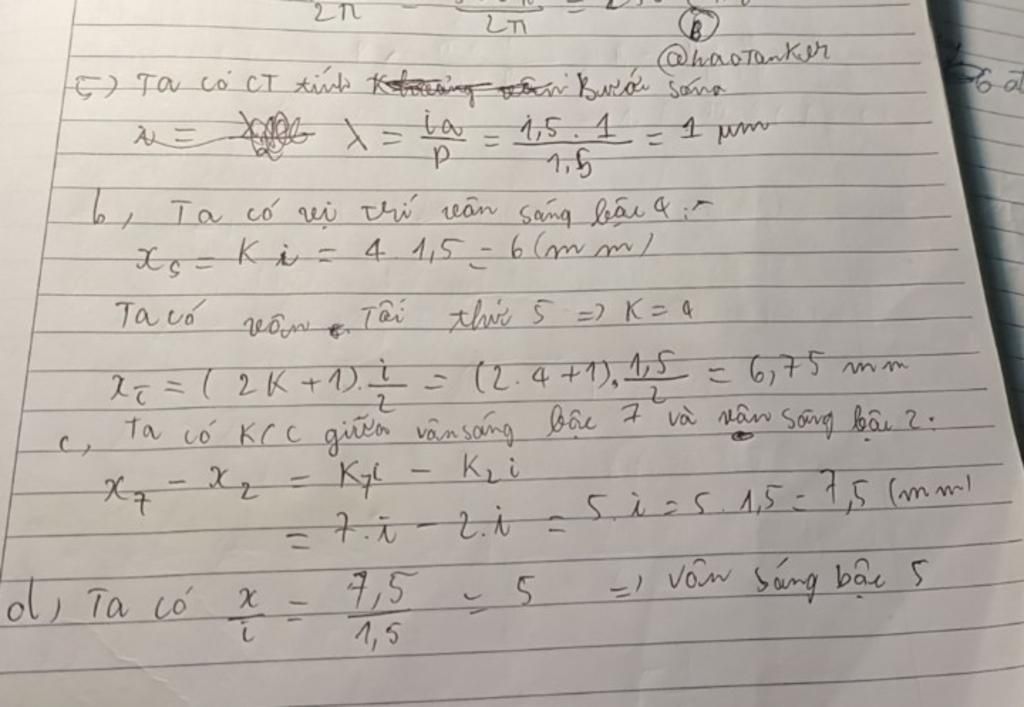 2n = 2n = 2,
B
@haoTanker
5) Ta có CT tính Bước sóng
λ = ia/D = 1,5 . 1/1,5 = 1 μm
b, Ta có vị trí vân sáng bậc 4 :
x_s = K i = 4 1,5 = 6 (mm)
Ta có vân Tối thứ 5 => K = 4
x_t = (2K+1).i/2 = (2.4+1).1,5/2 = 6,75 mm
c, Ta có K/C giữa vân sáng bậc 7 và vân sáng bậc 2.
x_7 - x_2 = K_7 i - K_2 i
= 7.i - 2.i = 5.i = 5.1,5 = 7,5 (mm)
d, Ta có x/i = 7,5/1,5 = 5 => Vân sáng bậc 5